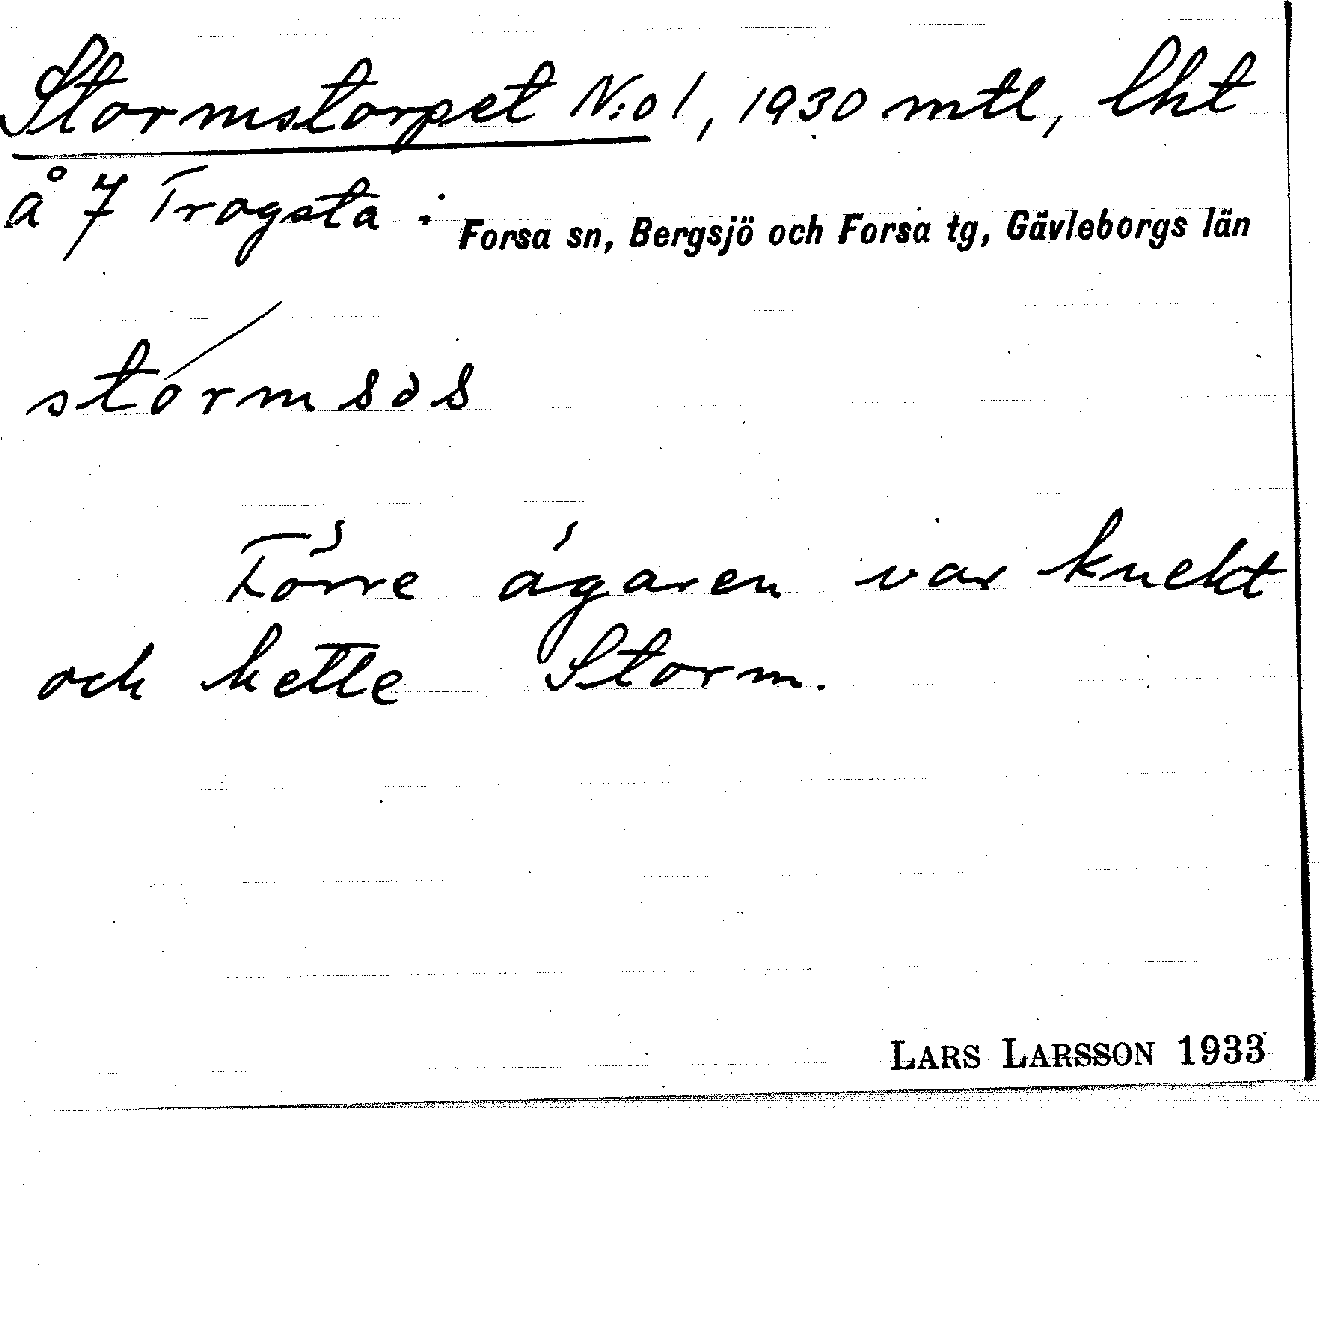 Stormstorpet N:o 1, 1930 mtl, lht
å 7 Trogsta. Forsa sn, Bergsjö och Forsa tg, Gävleborgs län
stórmsəs
Förre ägaren var knekt
och hette Storm.
LARS LARSSON 1933